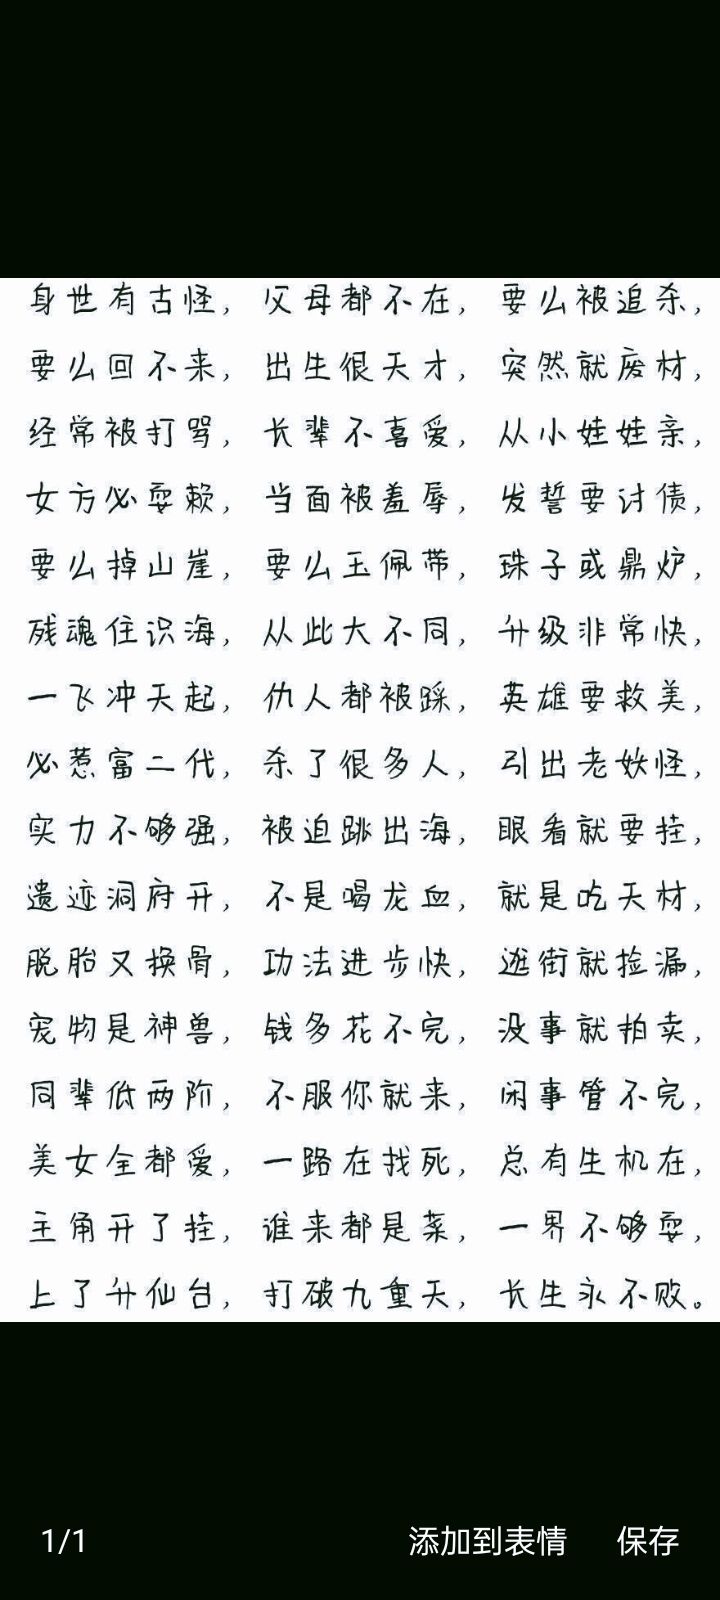 身世有古怪，父母都不在，要么被追杀，
要么回不来，出生很天才，突然就废材，
经常被打骂，长辈不喜爱，从小娃娃亲，
女方必耍赖，当面被羞辱，发誓要讨债，
要么掉山崖，要么玉佩带，珠子或鼎炉，
残魂住识海，从此大不同，升级非常快，
一飞冲天起，仇人都被踩，英雄要救美，
必惹富二代，杀了很多人，引出老妖怪，
实力不够强，被迫跳出海，眼看就要挂，
遗迹洞府开，不是喝龙血，就是吃天材，
脱胎又换骨，功法进步快，逛街就捡漏，
宠物是神兽，钱多花不完，没事就拍卖，
同辈低两阶，不服你就来，闲事管不完，
美女全都爱，一路在找死，总有生机在，
主角开了挂，谁来都是菜，一界不够耍，
上了升仙台，打破九重天，长生永不败。
1/1 添加到表情 保存